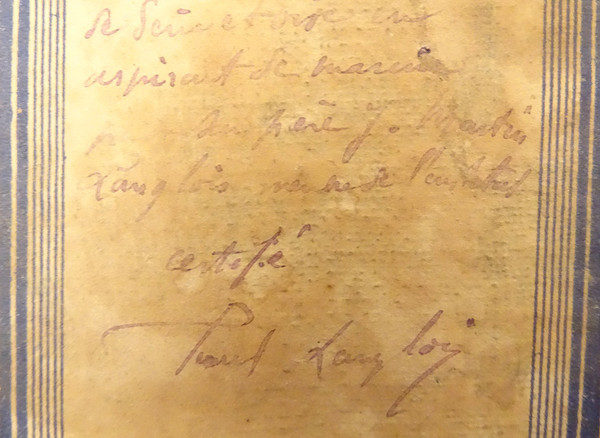 de Seine et Oise en
aspirant de marine
par son père J. Martin
Langlois membre de l'institut
certifié
Paul Langlois